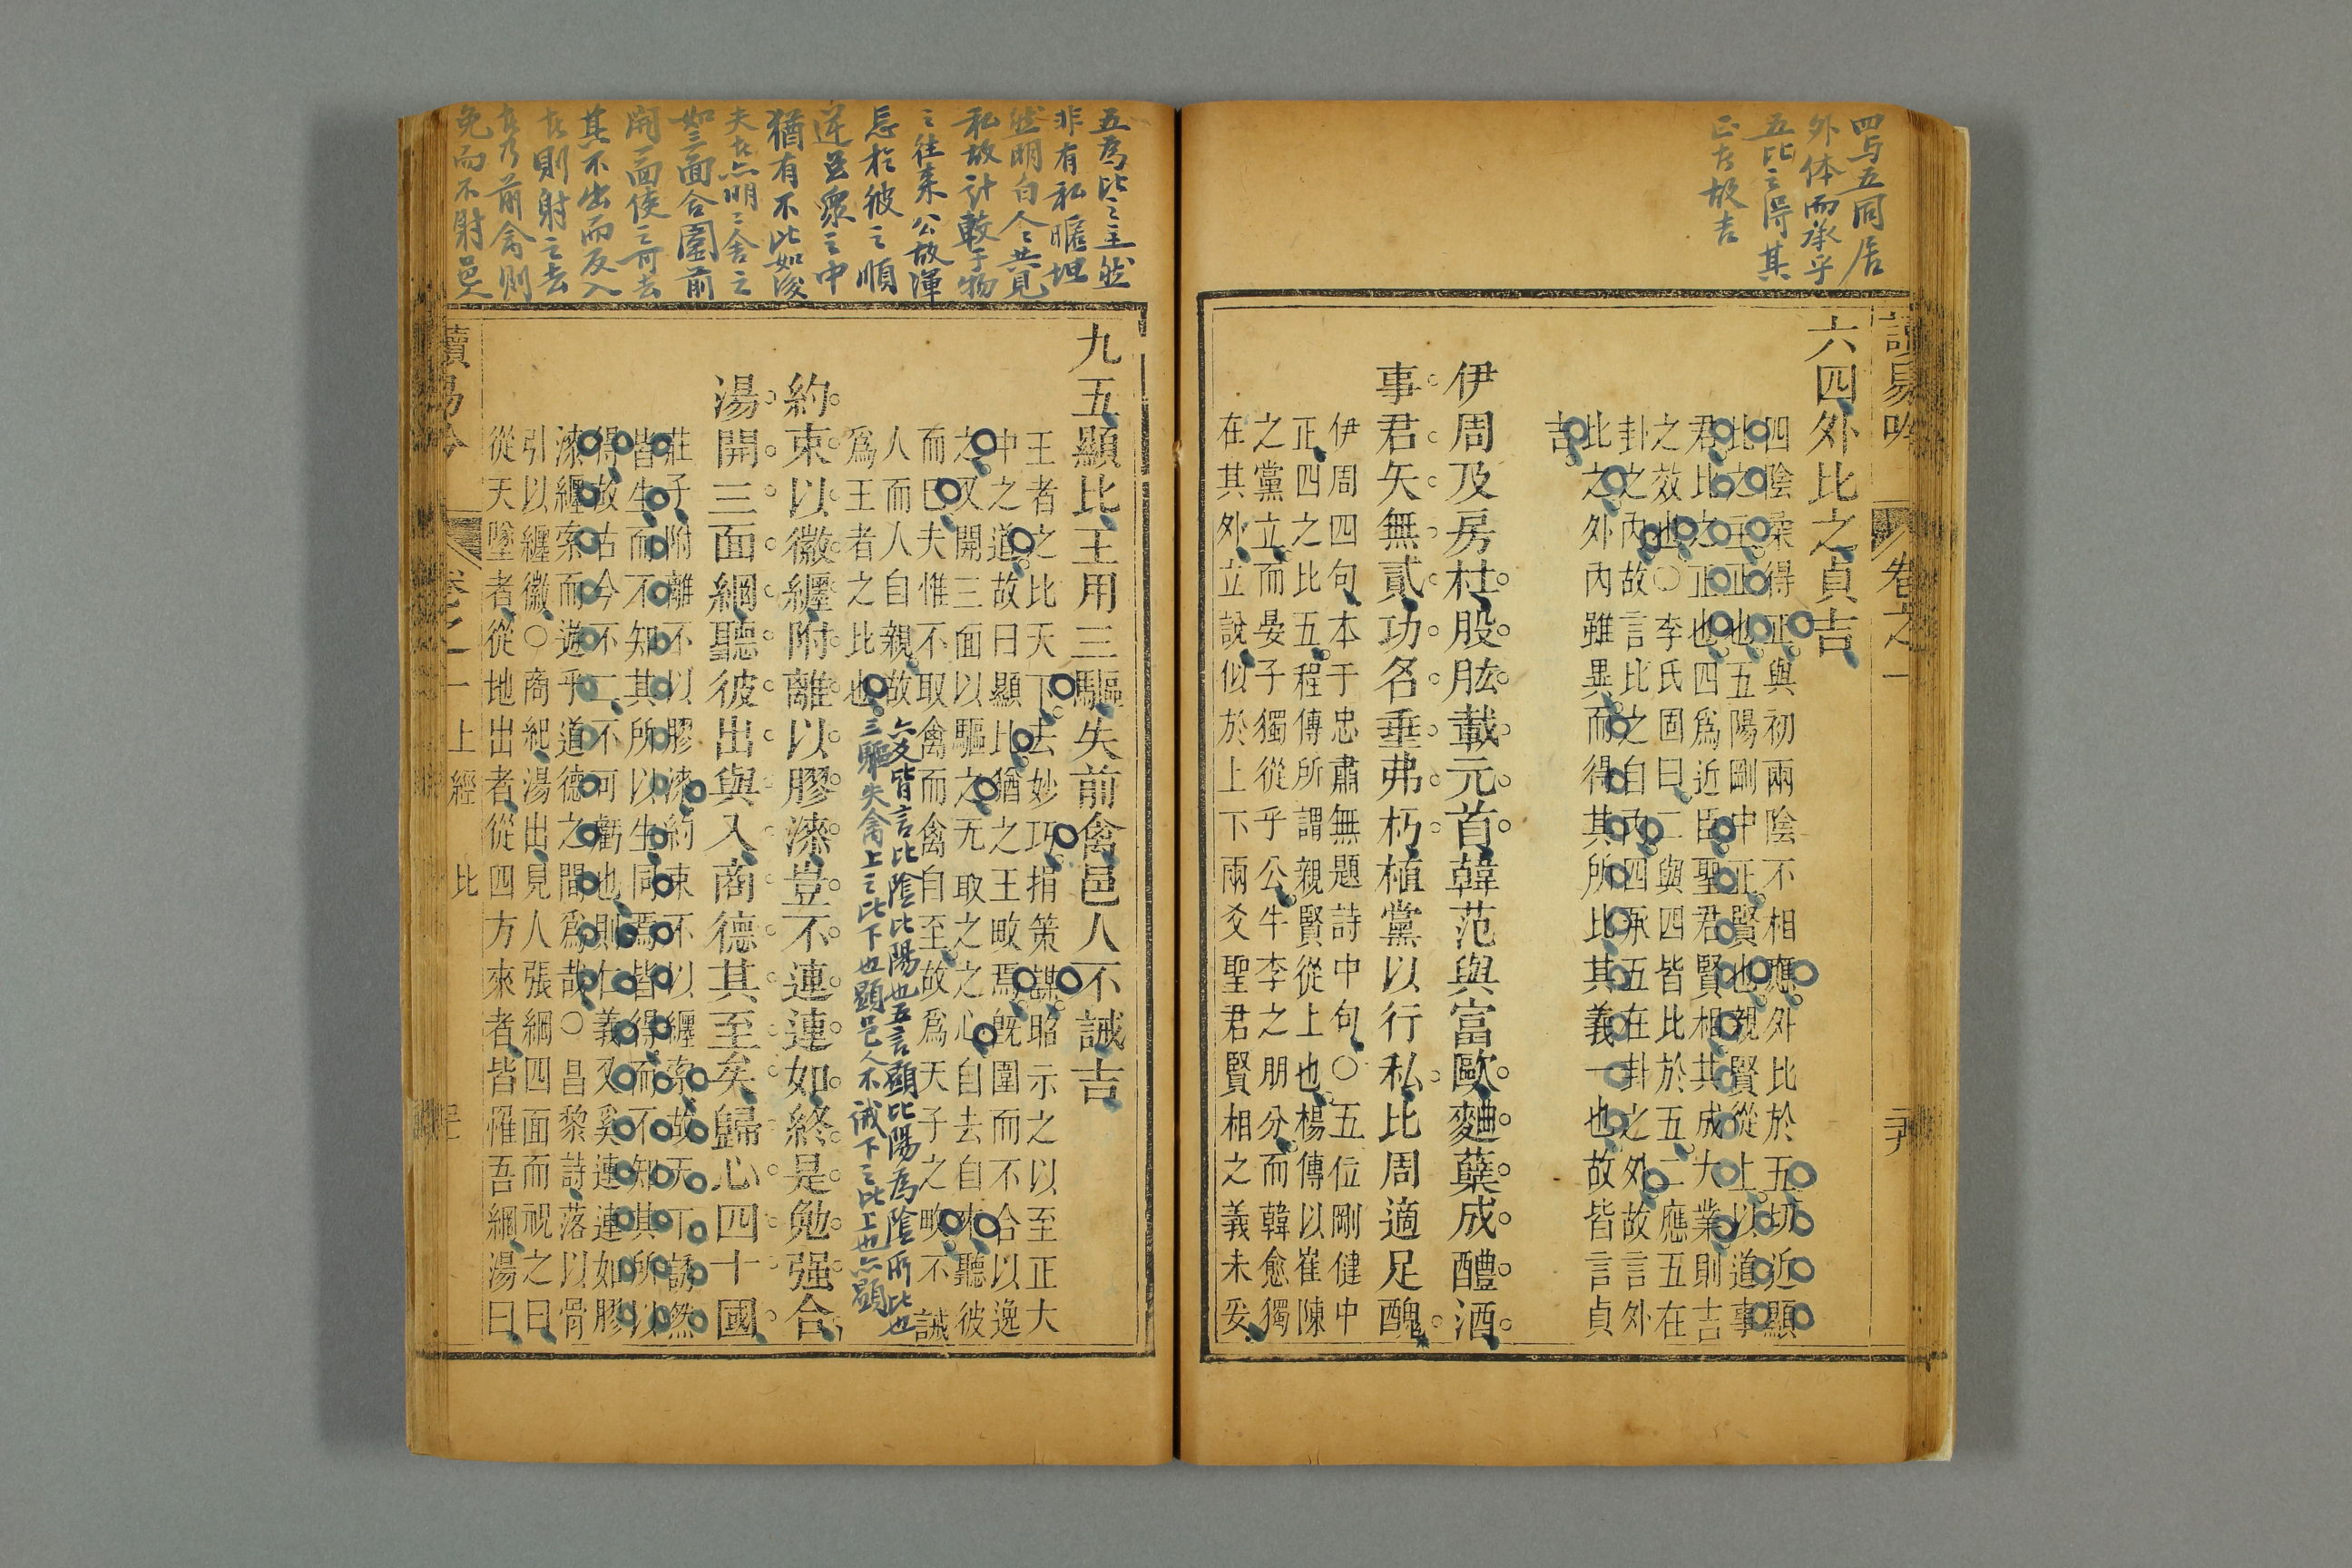 四与五同居
外体而承乎
五比之得其
正故吉
讀易吟
卷之一
六四外比之貞吉
四陰柔得正與初兩陰不相應外比於五切近顯
比之王正也五陽剛中正賢也親賢從上以道事
君比之正也四爲近臣聖君賢相其成大業則吉
之效也○李氏固曰二與四皆比於五二應五在
卦之內故言比之自內四承五在卦之外故言外
比之外內雖異而得其所比其義一也故皆言貞
吉
伊周及房杜股肱載元首韓范與富歐麯蘗成醴酒
事君矢無貳功名垂弗朽植黨以行私比周適足醜
伊周四句本于忠肅無題詩中句○五位剛健中
正四之比五程傳所謂親賢從上也楊傳以崔陳
之黨立而晏子獨從乎公牛李之朋分而韓愈獨
在其外立說似於上下兩爻聖君賢相之義未妥
五爲比之主然
非有私暱坦
然明白人人共見
私故計較于物
之往來公故渾
忘於彼之順
逆且衆之中
猶有不比如後
夫者亦明明舍之
如三面合圍前
開一面使之可去
其不出而反入
者則射之去
者乃前禽則
免而不射邑
九五顯比王用三驅失前禽邑人不誡吉
王者之比天下去妙巧捐策謀昭示之以至正大
中之道故曰顯比猶之王畋焉旣圍而不合以逸
之又開三面以驅之无取之之心自去自來聽彼
而已夫惟不取禽而禽自至故爲天子之畋不誡
人而人自親故
爲王者之比也
六爻皆言比陰比陽也五言顯比陽爲陰所比也
三驅失禽上之比下也顯邑人不誡下之比上也六顯
約束以徽纆附離以膠漆豈不連連如終是勉强合
湯開三面網聽彼出與入商德其至矣歸心四十國
莊子附離不以膠漆約束不以纆索故天下誘然
皆生而不知其所以生同焉皆得而不知其所以
得故古今不二不可虧也則仁義又奚連連如膠
漆纆索而遊乎道德之間爲哉○昌黎詩落以骨
引以纆徽○商紀湯出見人張網四面而祝之曰
從天墜者從地出者從四方來者皆罹吾網湯曰
讀易吟
卷之一
上經
比